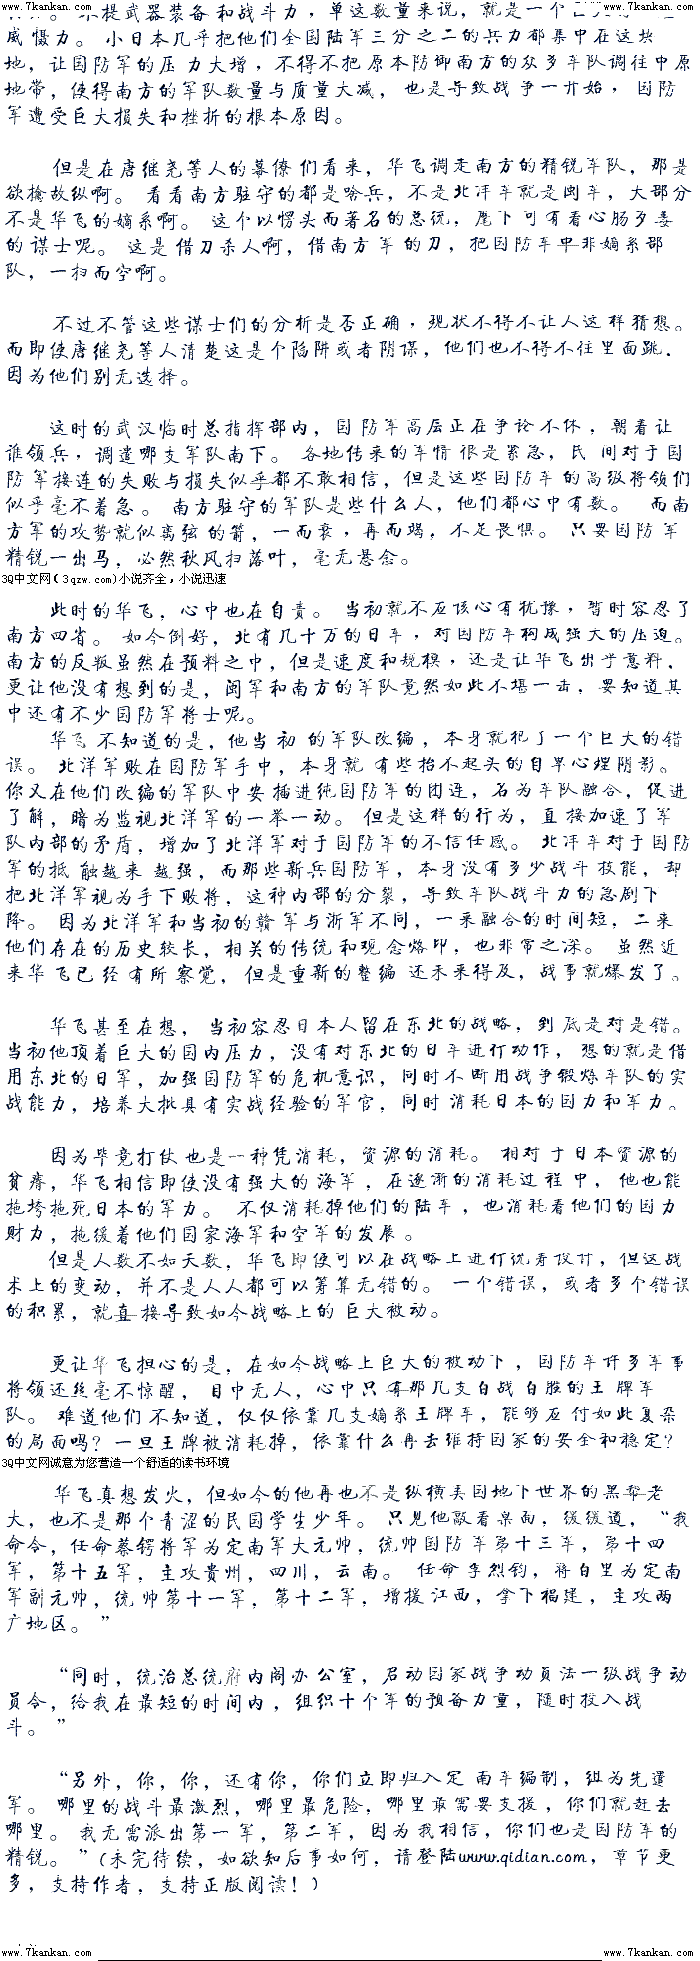 www.7kankan.com www.7kankan.com
不提武器装备和战斗力，单这数量来说，就是一个
威慑力。 小日本几乎把他们全国陆军三分之二的兵力都集中在这块
地，让国防军的压力大增，不得不把原本防御南方的众多军队调往中原
地带，使得南方的军队数量与质量大减，也是导致战争一开始，国防
军遭受巨大损失和挫折的根本原因。
但是在唐继尧等人的幕僚们看来，华飞调走南方的精锐军队，那是
欲擒故纵啊。 看看南方驻守的都是啥兵，不是北洋军就是闽军，大部分
不是华飞的嫡系啊。 这个以愣头而著名的总统，麾下可有着心肠歹毒
的谋士呢。 这是借刀杀人啊，借南方军的刀，把国防军中非嫡系部
队，一扫而空啊。
不过不管这些谋士们的分析是否正确，现状不得不让人这样猜想。
而即使唐继尧等人清楚这是个陷阱或者阴谋，他们也不得不往里面跳，
因为他们别无选择。
这时的武汉临时总指挥部内，国防军高层正在争论不休，朝着让
谁领兵，调遣哪支军队南下。 各地传来的军情很是紧急，民间对于国
防军接连的失败与损失似乎都不敢相信，但是这些国防军的高级将领们
似乎毫不着急。 南方驻守的军队是些什么人，他们都心中有数。 而南
方军的攻势就似离弦的箭，一而衰，再而竭，不足畏惧。 只要国防军
精锐一出马，必然秋风扫落叶，毫无悬念。
3Q中文网(3qzw.com)小说齐全，小说迅速
此时的华飞，心中也在自责。 当初就不应该心有犹豫，暂时容忍了
南方四省。 如今倒好，北有几十万的日军，对国防军构成强大的压迫。
南方的反叛虽然在预料之中，但是速度和规模，还是让华飞出乎意料，
更让他没有想到的是，闽军和南方的军队竟然如此不堪一击，要知道其
中还有不少国防军将士呢。
华飞不知道的是，他当初的军队改编，本身就犯了一个巨大的错
误。 北洋军败在国防军手中，本身就有些抬不起头的自卑心理阴影。
你又在他们改编的军队中安插进纯国防军的团连，名为军队融合，促进
了解，暗为监视北洋军的一举一动。 但是这样的行为，直接加速了军
队内部的矛盾，增加了北洋军对于国防军的不信任感。 北洋军对于国防
军的抵触越来越强，而那些新兵国防军，本身没有多少战斗技能，却
把北洋军视为手下败将，这种内部的分裂，导致军队战斗力的急剧下
降。 因为北洋军和当初的赣军与浙军不同，一来融合的时间短，二来
他们存在的历史较长，相关的传统和观念烙印，也非常之深。 虽然近
来华飞已经有所察觉，但是重新的整编还未来得及，战事就爆发了。
华飞甚至在想，当初容忍日本人留在东北的战略，到底是对是错。
当初他顶着巨大的国内压力，没有对东北的日军进行动作，想的就是借
用东北的日军，加强国防军的危机意识，同时不断用战争锻炼军队的实
战能力，培养大批具有实战经验的军官，同时消耗日本的国力和军力。
因为毕竟打仗也是一种凭消耗，资源的消耗。 相对于日本资源的
贫瘠，华飞相信即使没有强大的海军，在逐渐的消耗过程中，他也能
拖垮拖死日本的军力。 不仅消耗掉他们的陆军，也消耗着他们的国力
财力，拖缓着他们国家海军和空军的发展。
但是人数不如天数，华飞即使可以在战略上进行统筹设计，但这战
术上的变动，并不是人人都可以筹算无错的。 一个错误，或者多个错误
的积累，就直接导致如今战略上的巨大被动。
更让华飞担心的是，在如今战略上巨大的被动下，国防军许多军事
将领还丝毫不惊醒，目中无人，心中只有那几支白战白胜的王牌军
队。 难道他们不知道，仅仅依靠几支嫡系王牌军，能够应付如此复杂
的局面吗？一旦王牌被消耗掉，依靠什么再去维持国家的安全和稳定？
3Q中文网诚意为您营造一个舒适的读书环境
华飞真想发火，但如今的他再也不是纵横美国地下世界的黑帮老
大，也不是那个青涩的民国学生少年。 只见他敲着桌面，缓缓道，“我
命令，任命蔡锷将军为定南军大元帅，统帅国防军第十三军，第十四
军，第十五军，主攻贵州，四川，云南。 任命李烈钧，蒋百里为定南
军副元帅，统帅第十一军，第十二军，增援江西，拿下福建，主攻两
广地区。”
“同时，统治总统府内阁办公室，启动国家战争动员法一级战争动
员令，给我在最短的时间内，组织十个军的预备力量，随时投入战
斗。”
“另外，你，你，还有你，你们立即归入定南军编制，组为先遣
军。 哪里的战斗最激烈，哪里最危险，哪里最需要支援，你们就赶去
哪里。 我无需派出第一军，第二军，因为我相信，你们也是国防军的
精锐。”(未完待续，如欲知后事如何，请登陆www.qidian.com，章节更
多，支持作者，支持正版阅读！)
www.7kankan.com www.7kankan.com